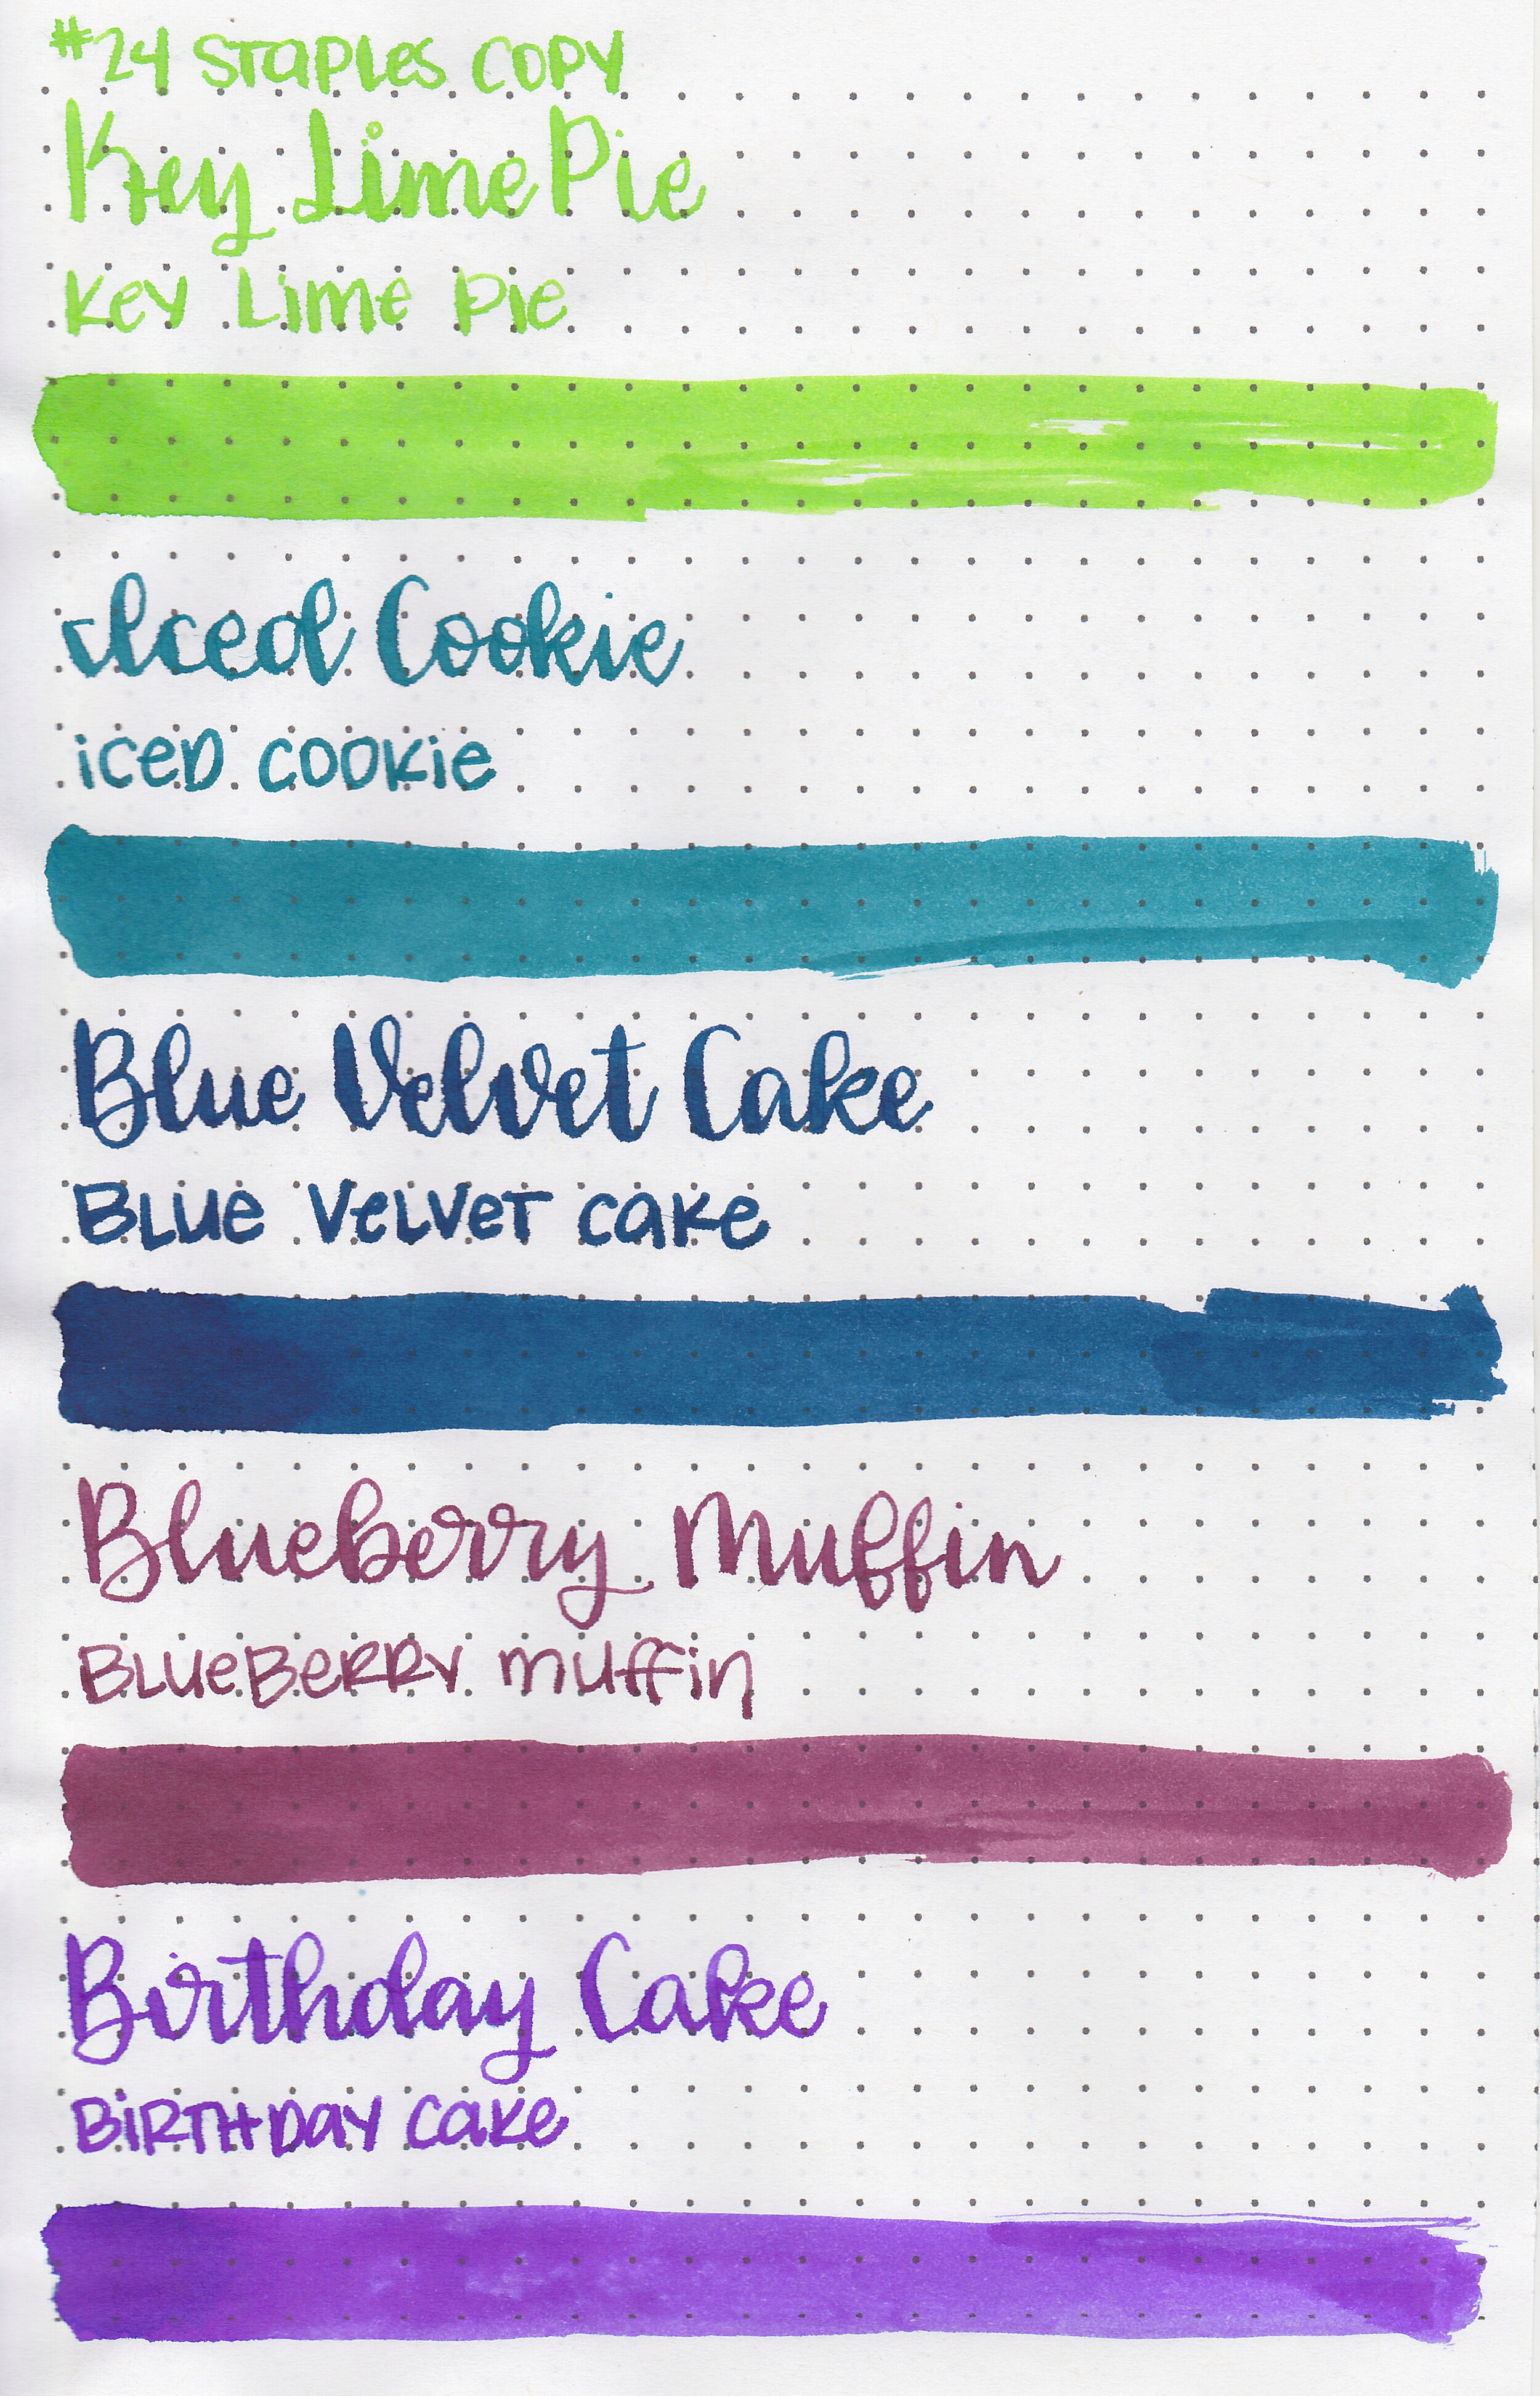 #24 STaPLes COPY
Key Lime Pie
Key Lime Pie
Iced Cookie
iceD cookie
Blue Velvet Cake
BLUe VeLVeT cake
Blueberry Muffin
BLUeBeRRY muffin
Birthday Cake
BiRTHDaY Cake